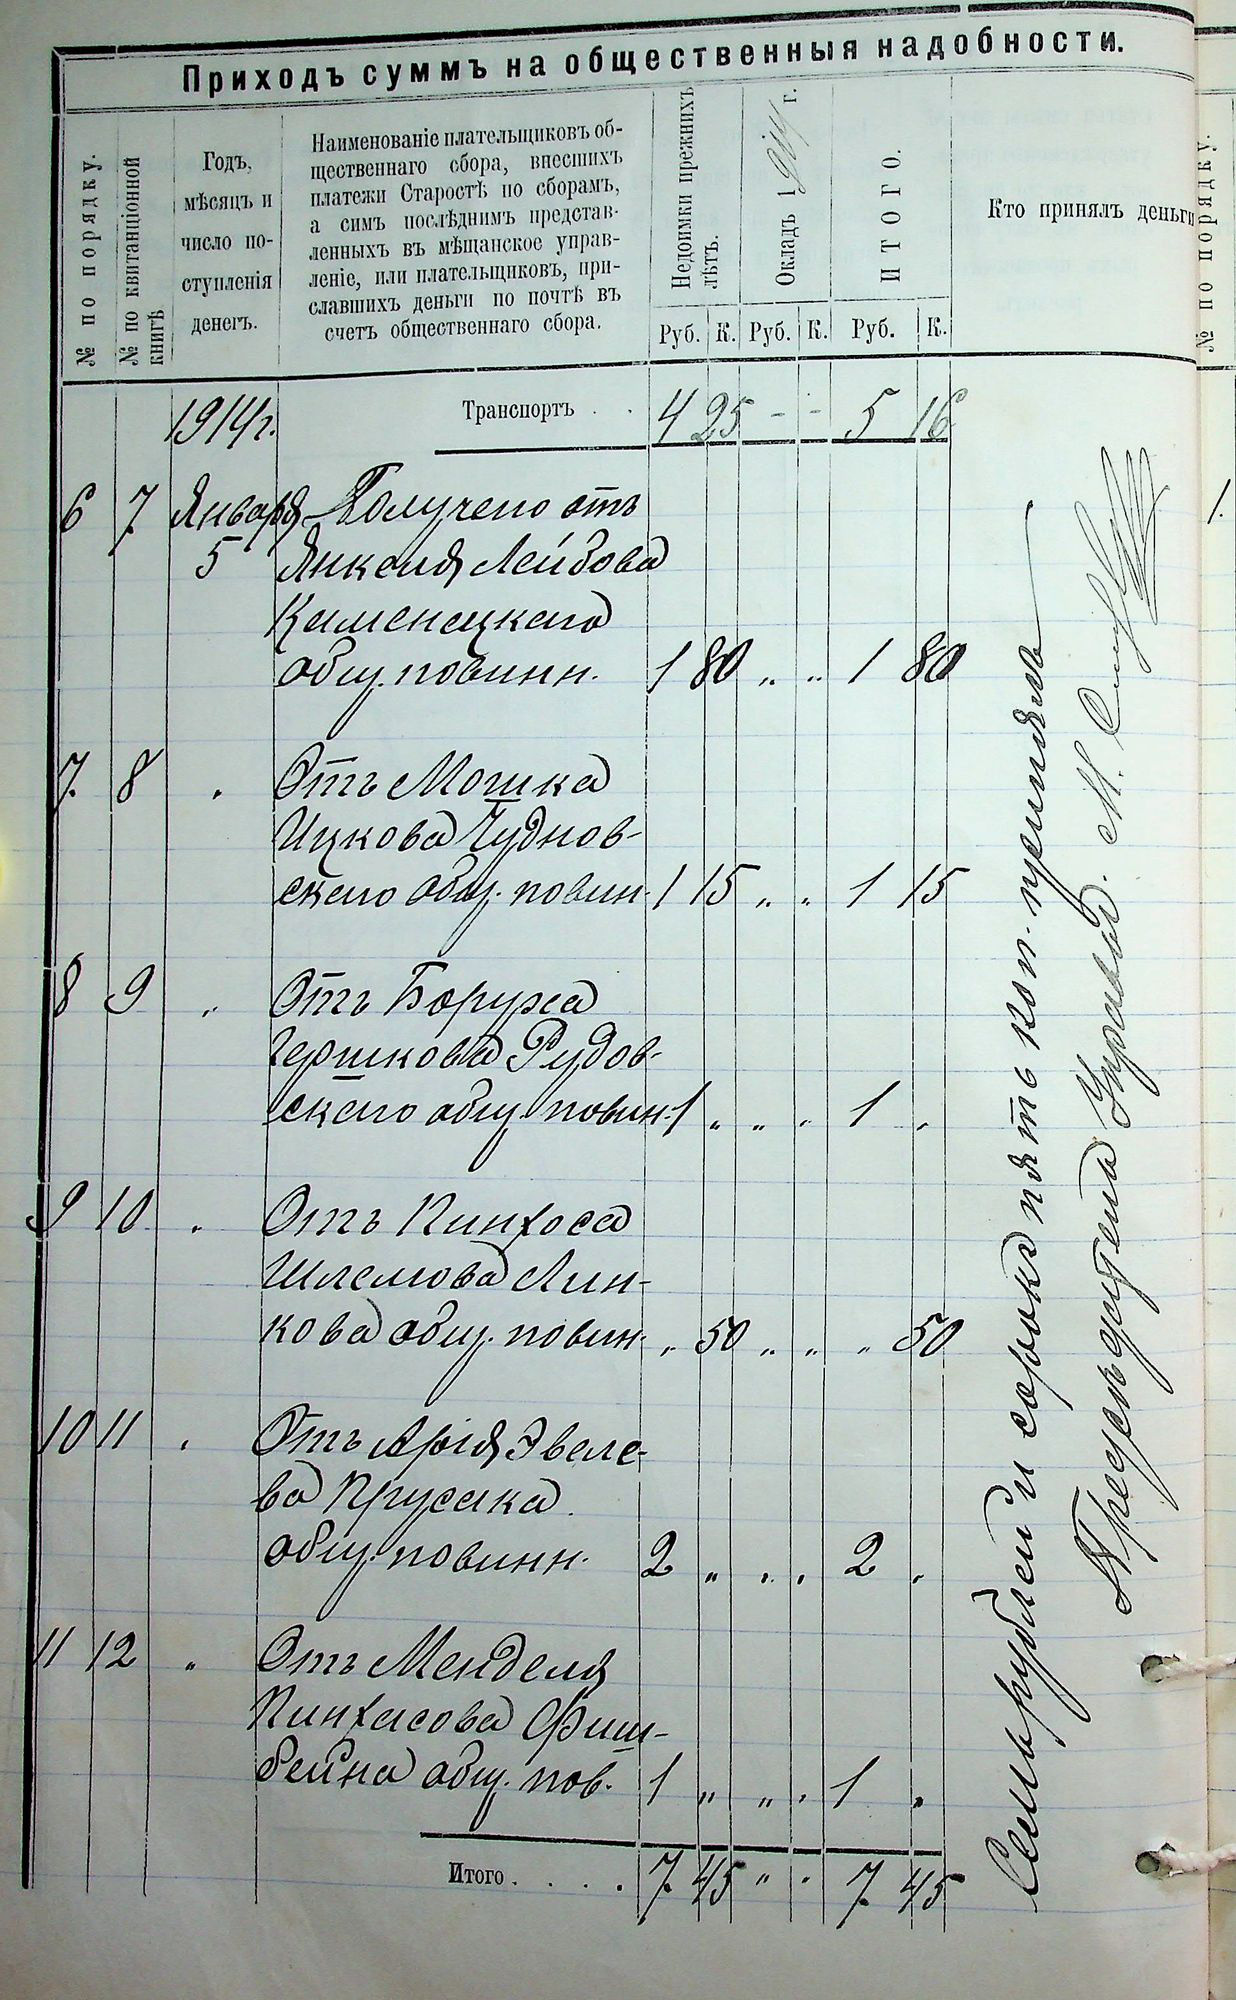 Приходъ суммъ на общественныя надобности.
№ по порядку.
№ по квитанціонной
книгѣ
Годъ,
мѣсяцъ и
число по-
ступленія
денегъ.
Наименованіе плательщиковъ об-
щественнаго сбора, внесшихъ
платежи Старостѣ по сборамъ,
а симъ послѣднимъ представ-
ленныхъ въ мѣщанское управ-
леніе, или плательщиковъ, при-
славшихъ деньги по почтѣ въ
счетъ общественнаго сбора.
Недоимки прежнихъ
лѣтъ.
Окладъ 1914 г.
ИТОГО.
Кто принялъ деньги
№ по порядку.
Руб. К. Руб. К. Руб. К.
1914 г. Транспортъ . . 4 25 - - 5 16
6 7 Января Получено отъ
5 Янкеля Лейбова
Каменецкаго
общ. повинн. 1 80 „ „ 1 80
7. 8 „ Отъ Мошка
Ицкова Чуднов-
скаго общ. повин. 1 15 „ „ 1 15
8 9 „ Отъ Боруха
Гершкова Рудов-
скаго общ. повин. 1 „ „ „ 1 „
9 10 „ Отъ Пинхоса
Шлемова Лин-
кова общ. повин. „ 50 „ „ „ 50
10 11 „ Отъ Арія Эвеле-
ва Прусака
общ. повинн. 2 „ „ „ 2 „
11 12 „ Отъ Менделя
Пинхасова Фиш-
бейна общ. пов. 1 „ „ „ 1 „
Итого . . . . 7 45 „ „ 7 45
Семь рублей и сорокъ пять коп. принялъ
Управы. М.
1.